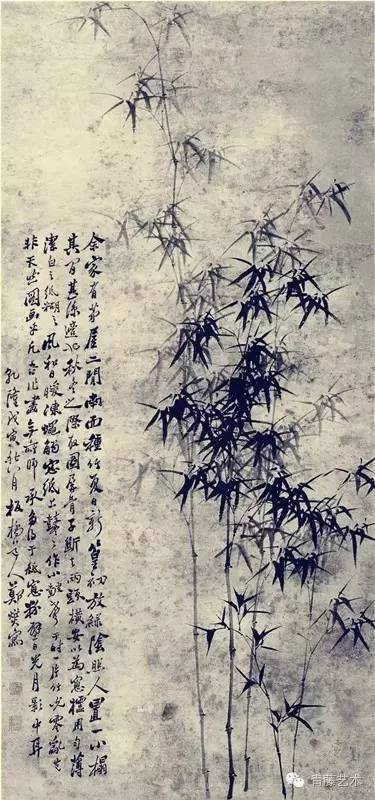 余家有茅屋二間南面種竹夏日新篁初放綠陰照人置一小榻
其中甚涼適也秋冬之際取圍屏骨子斷去兩頭橫安以為窗櫺用勻薄
潔白之紙糊之風和日暖凍蠅觸窗紙上鼕鼕作小鼓聲于時一片竹影零亂豈
非天然圖畫乎凡吾畫竹無所師承多得于紙窗粉壁日光月影中耳
乾隆戊寅秋月板橋人鄭燮寫
青藤艺术